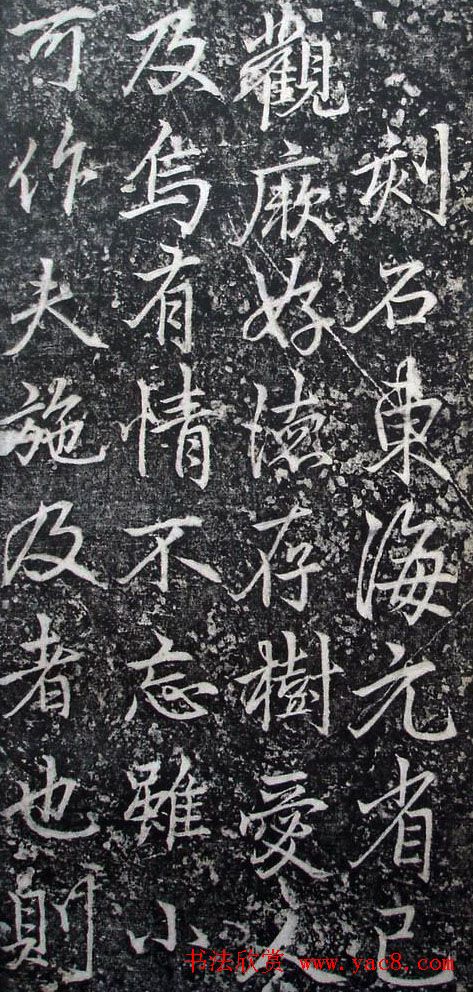 刻石東海元省已
觀厥好德存樹愛人
及烏有情不忘雖小
可作夫施及者也則
书法欣赏 www.yac8.com